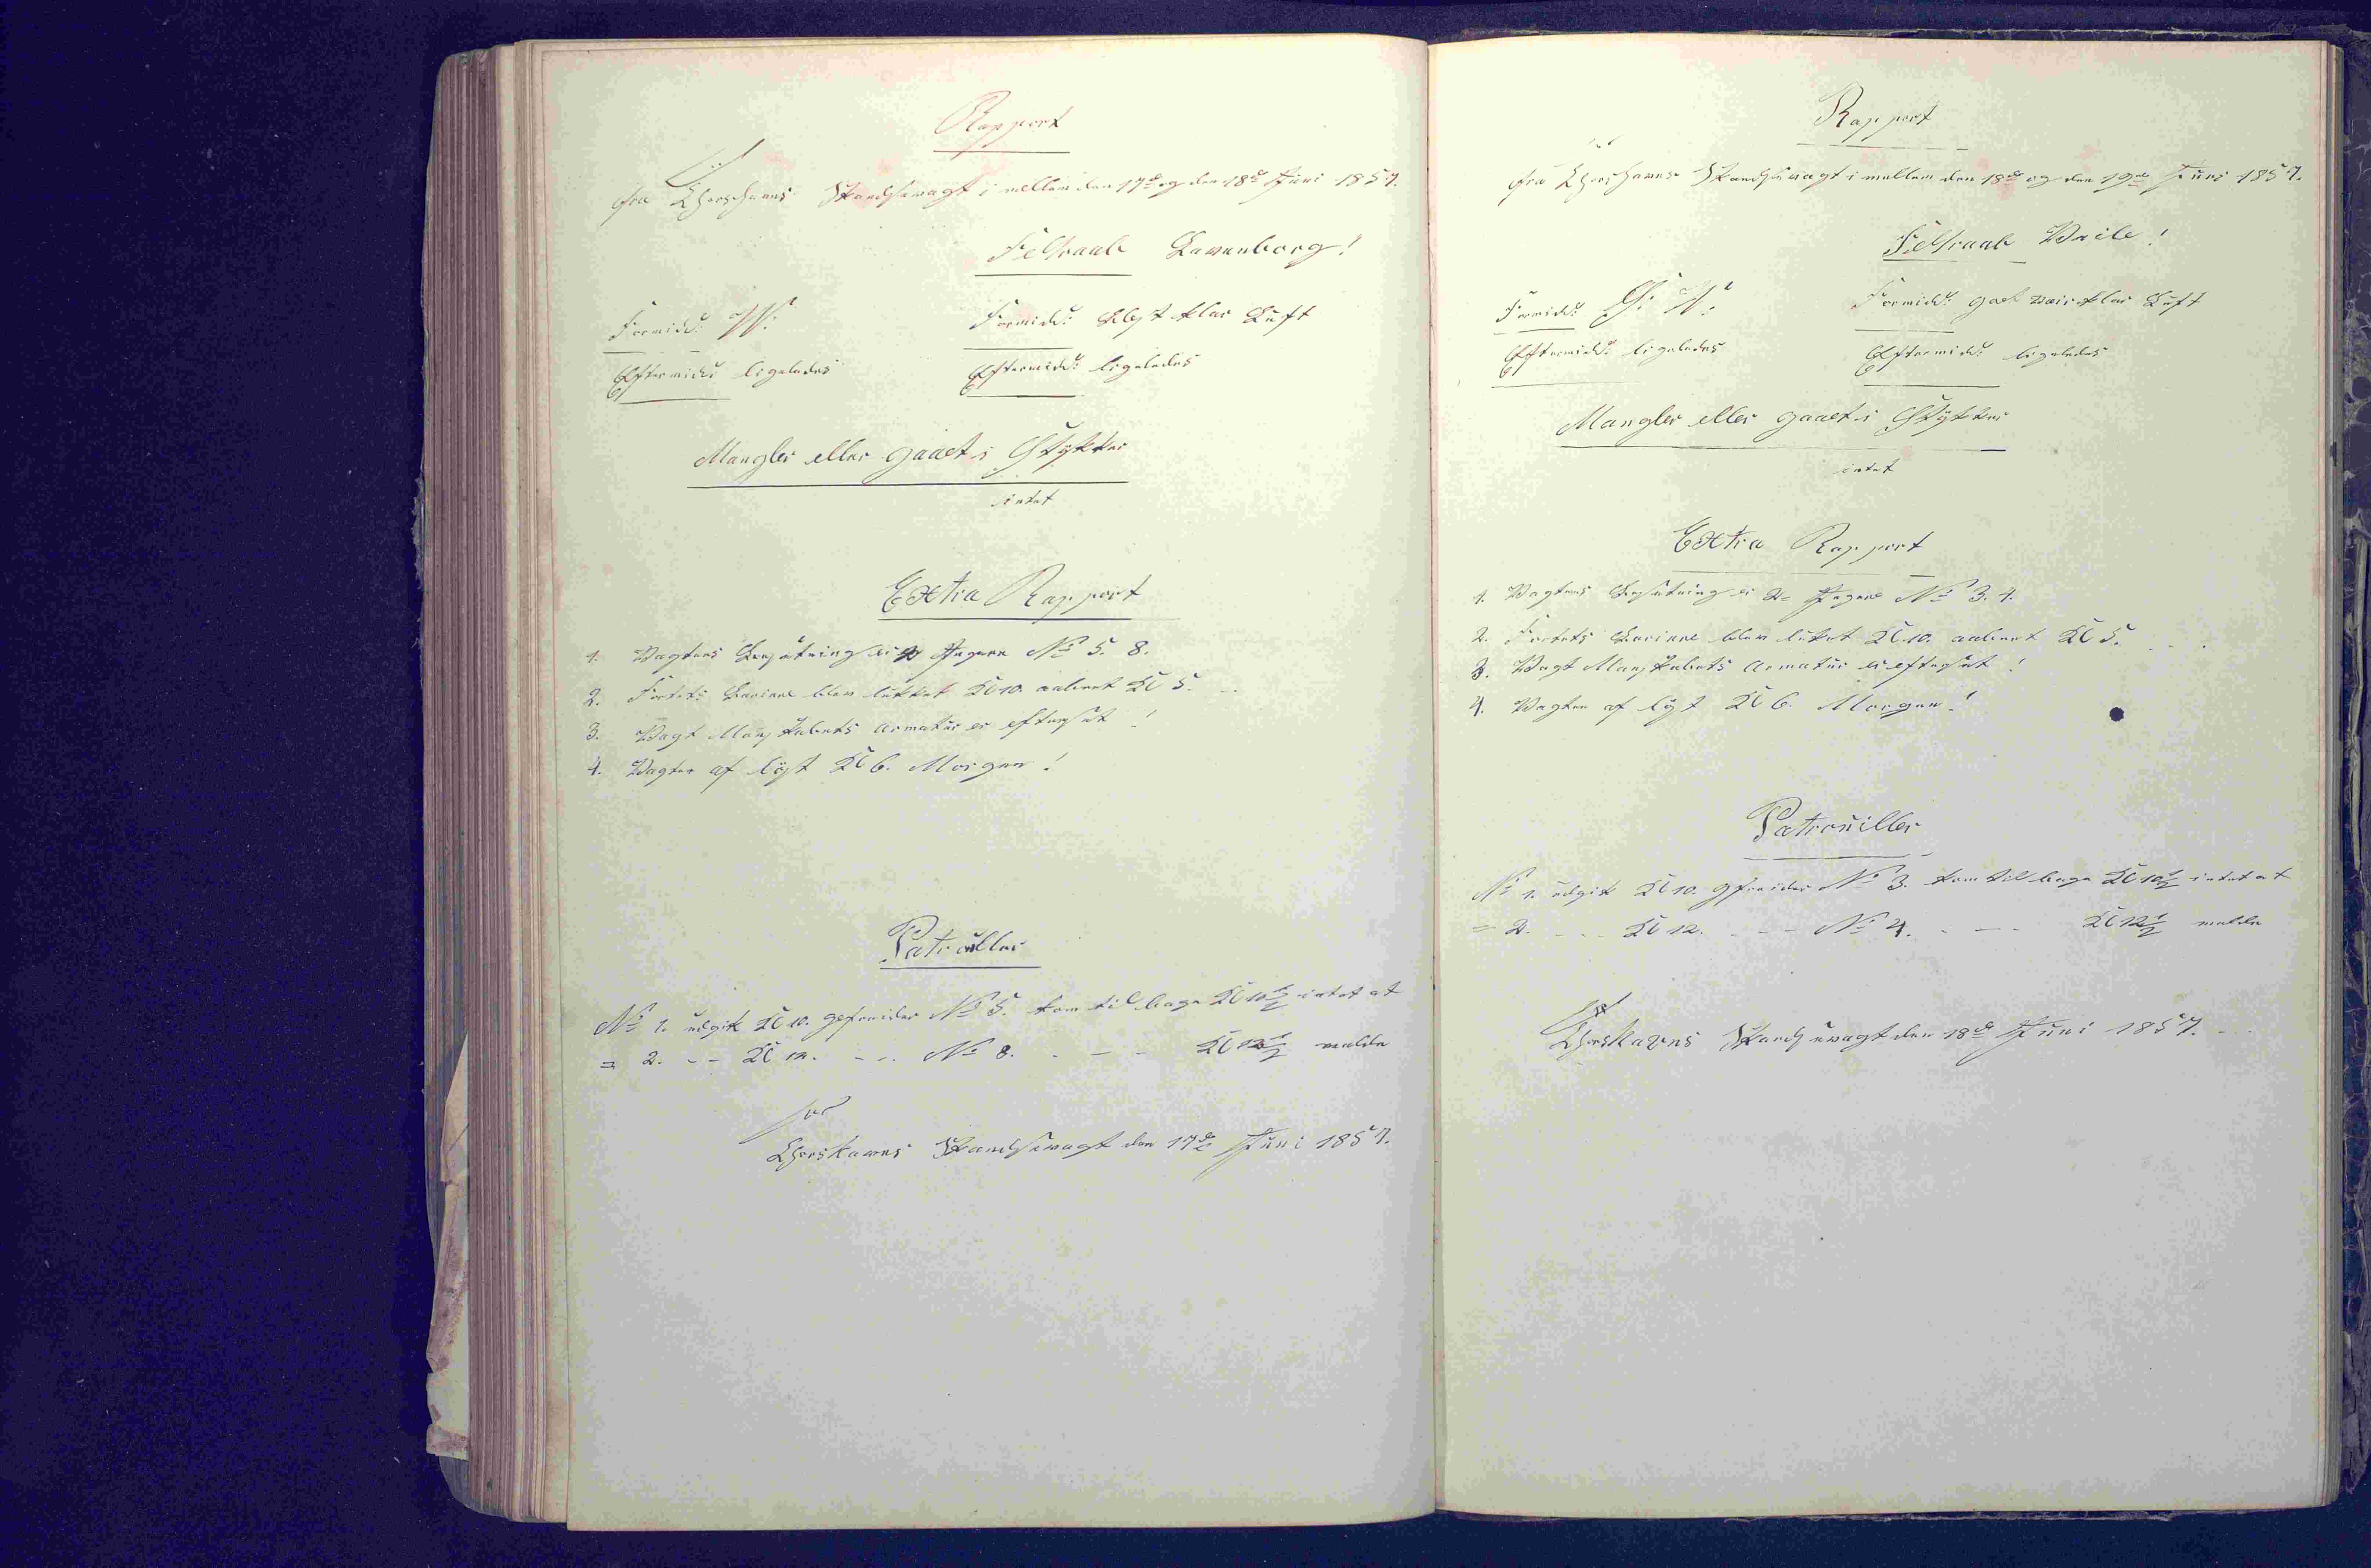 Rapport
fra Thorshavns Skandsevagt i mellem den 17de og den 18de Juni 1857.
Feltraab Lauenborg!
Formidd: W:
Formidd: klar Luft
Eftermidd: ligeledes
Eftermidd: ligeledes
Mangler eller gaaet i Stykker
intet
Extra Rapport
1. Vagtens Besætning er 2 Jægere No 5. 8.
2. Fortets Barriere blev lukket Kl 10. aabnet Kl 5.
3. Vagt Mandskabets Armatur er efterset!
4. Vagten af löst Kl 6. Morgen!
Patruller
No 1. udgik Kl 10. gefreider No 5. kom tilbage Kl 10½ intet at
= 2. - - Kl 12. - - No 8. - - - Kl 12½ melde
Thorshavns Skandsevagt den 17de Juni 1857.
Rapport
fra Thorshavns Skandsevagt i mellem den 18de og den 19de Juni 1857.
Feltraab Veile!
Formidd:
Formidd: got veir klar Luft
Eftermidd: ligeledes
Eftermidd: ligeledes
Mangler eller gaaet i Stykker
intet
Extra Rapport
1. Vagtens Besætning er 2 Jægere No 3. 4.
2. Fortets Barriere blev luket Kl 10. aabnet Kl 5.
3. Vagt Mandskabets Armatur er efterset!
4. Vagten af löst Kl 6. Morgen!
Patrouiller
No 1. udgik Kl 10. gfreider No 3. kom tilbage Kl 10½ intet at
= 2. - - Kl 12. - - No 4. - - - Kl 12½ melde
Thorshavns Skandsevagt den 18de Juni 1857.